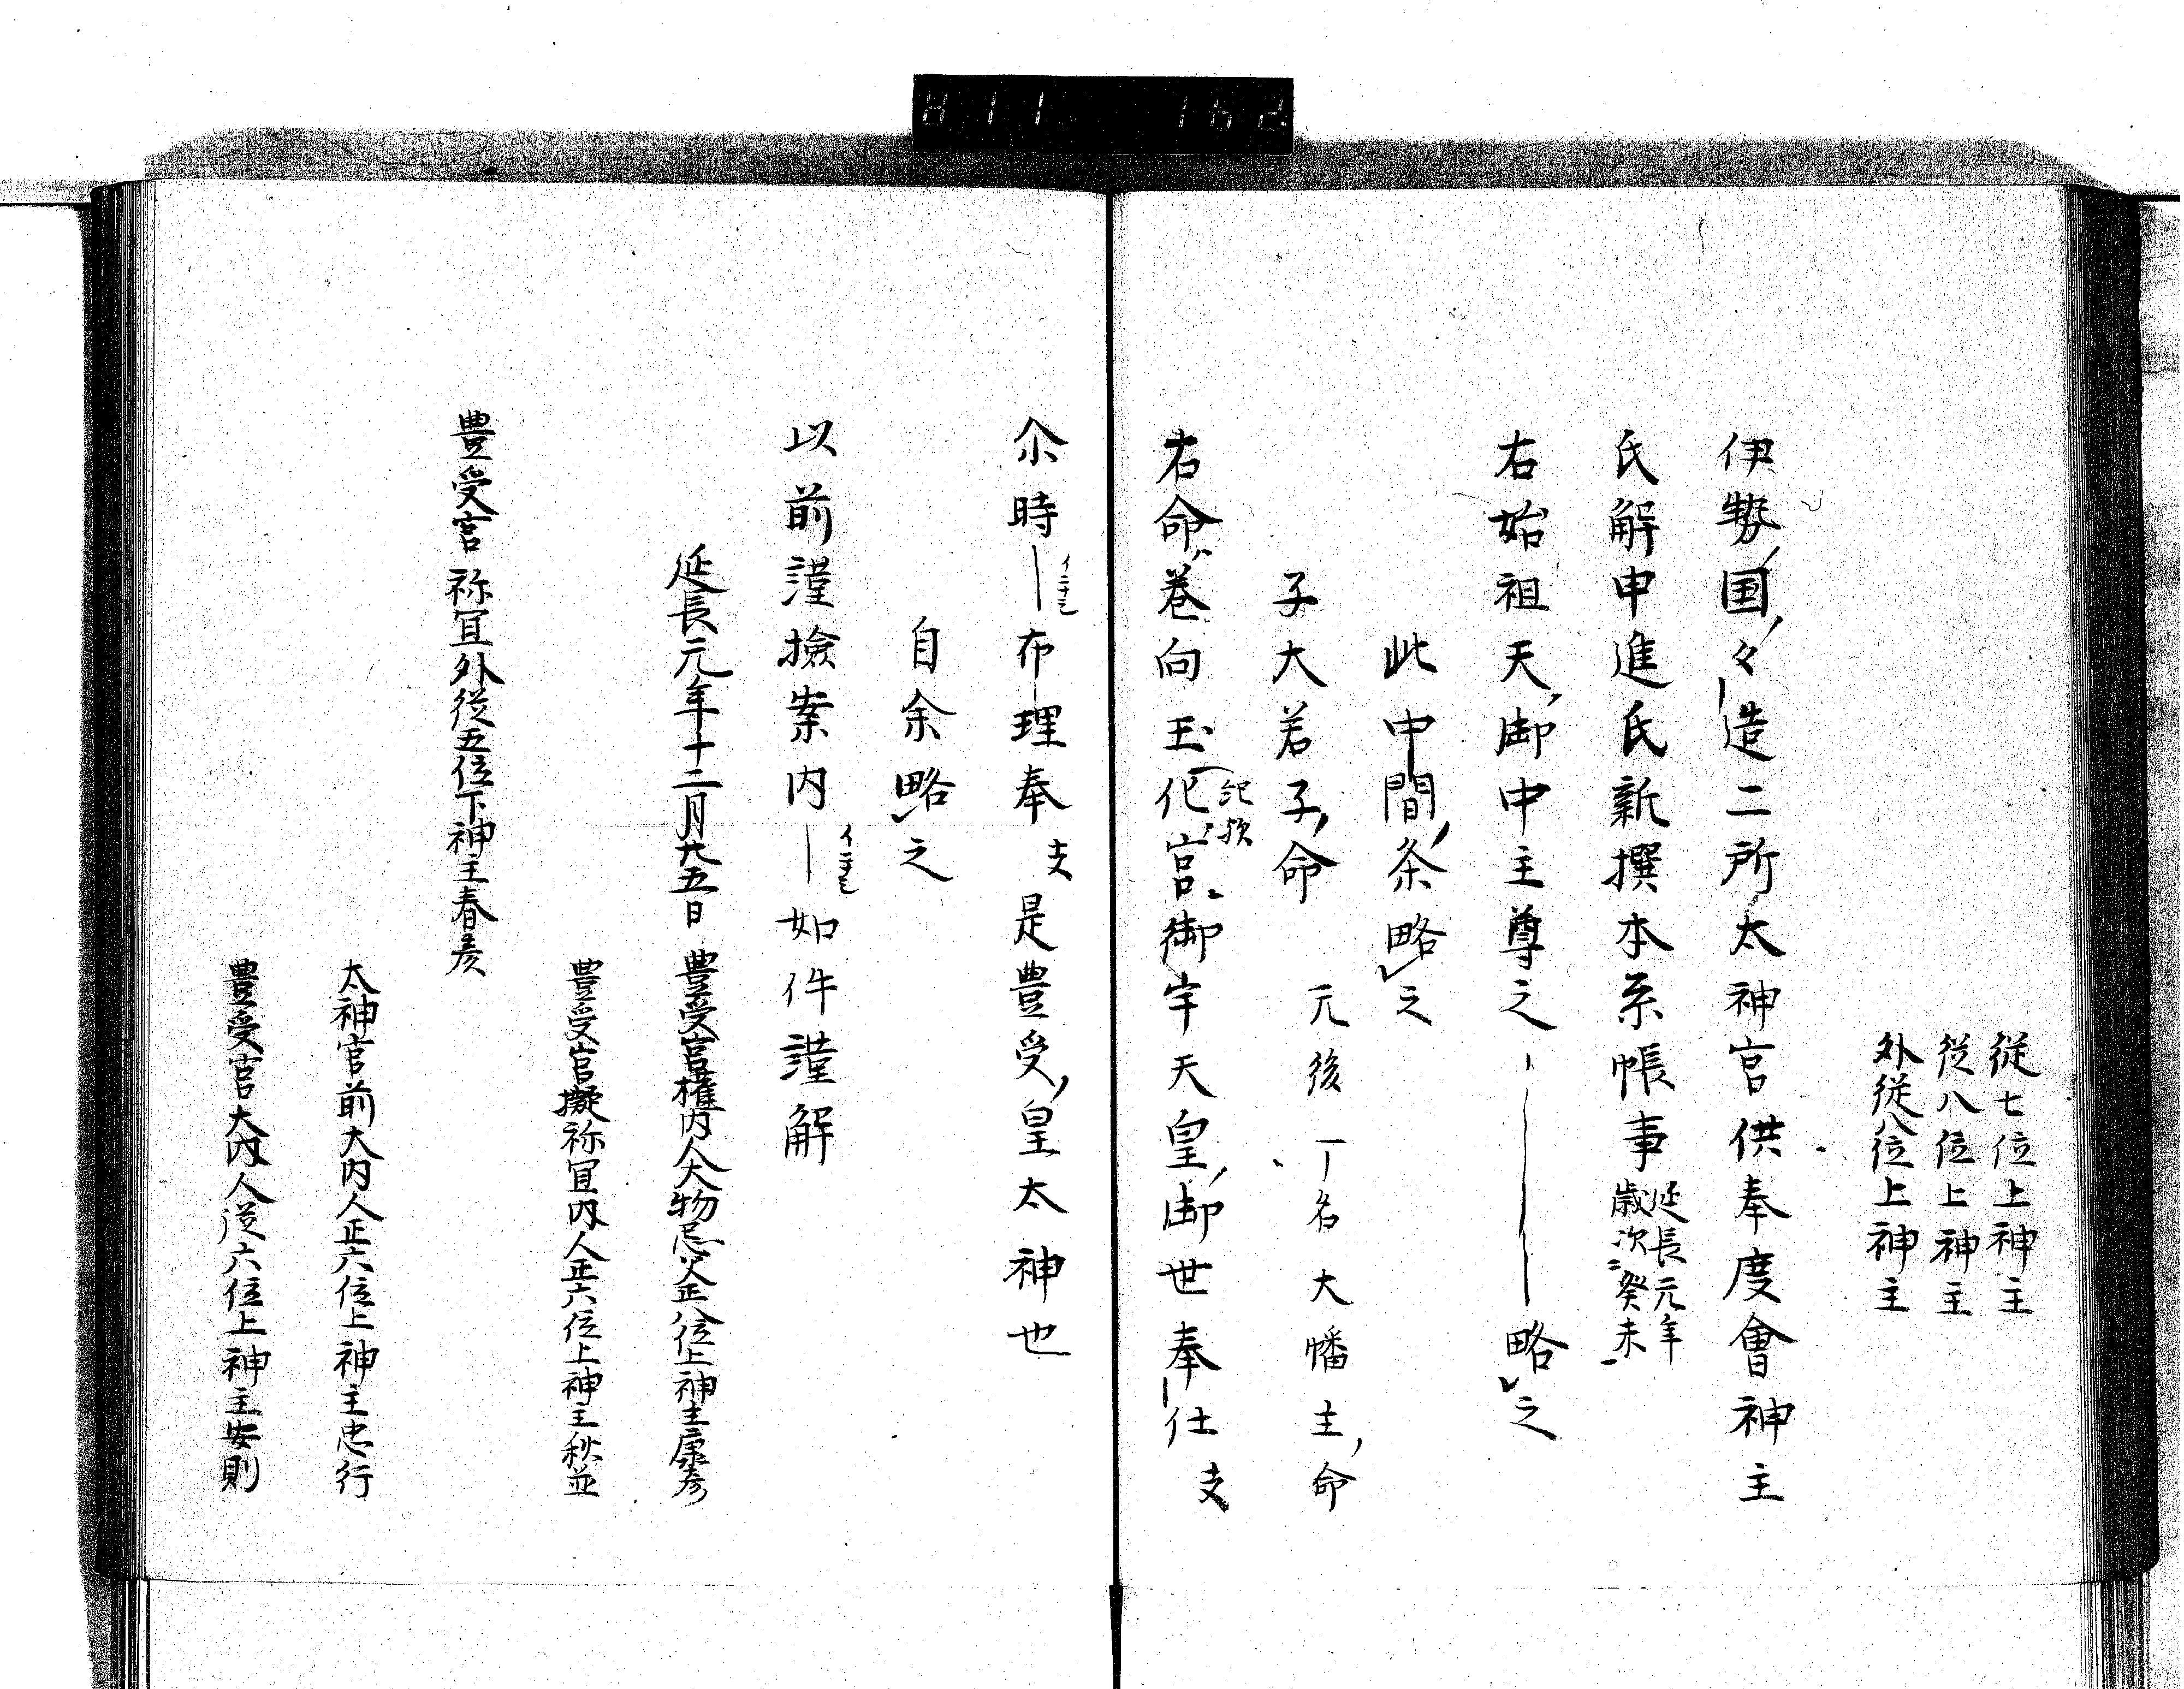 811 162
従七位上神主
従八位上神主
外従八位上神主
伊勢国々造二所太神宮供奉度會神主
氏解申進氏新撰本系帳事延長元年
歳次癸未
右始祖天御中主尊之略之
此中間条略之
子大若子命 元後一名大幡主命
右命巻向玉化宮御宇天皇御世奉仕支
記欤
尒時布理奉支是豊受皇太神也
イ二十モ
自余略之
以前謹撿案内如件謹解
延長元年十二月廿五日 豊受宮権内人大物忌父正八位上神主康彦
豊受宮擬祢冝内人正六位上神主秋並
豊受宮祢冝外従五位下神主春彦
太神宮前大内人正六位上神主忠行
豊受宮大内人従六位上神主安則